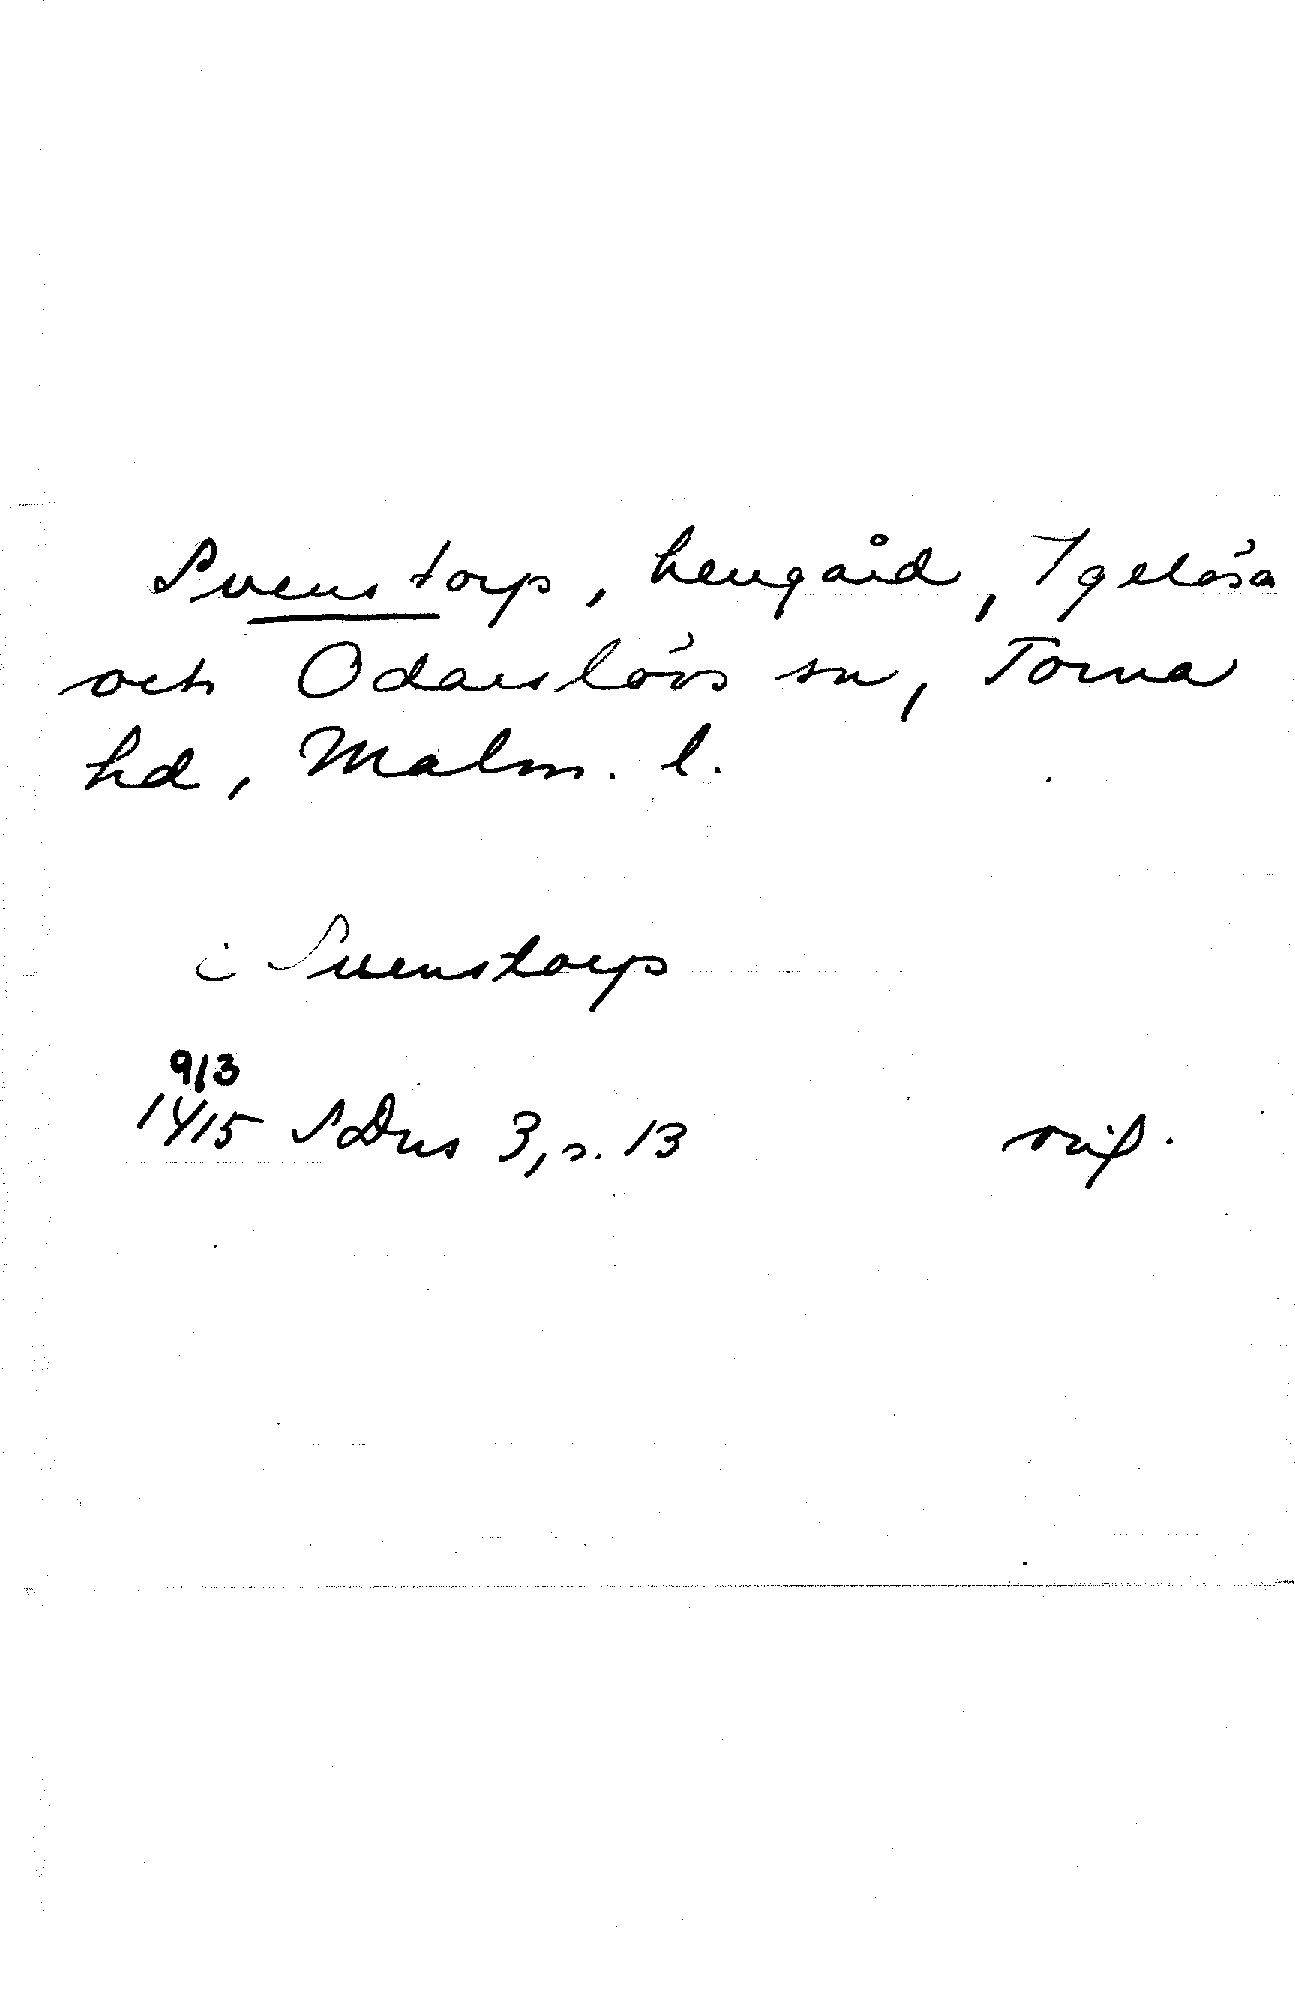 Svenstorp, herrgård, Igelösa
och Odarslövs sn, Torna
hd, Malm. l.
i Suenstorp
9/3
1415 SDns 3, s. 13 orig.